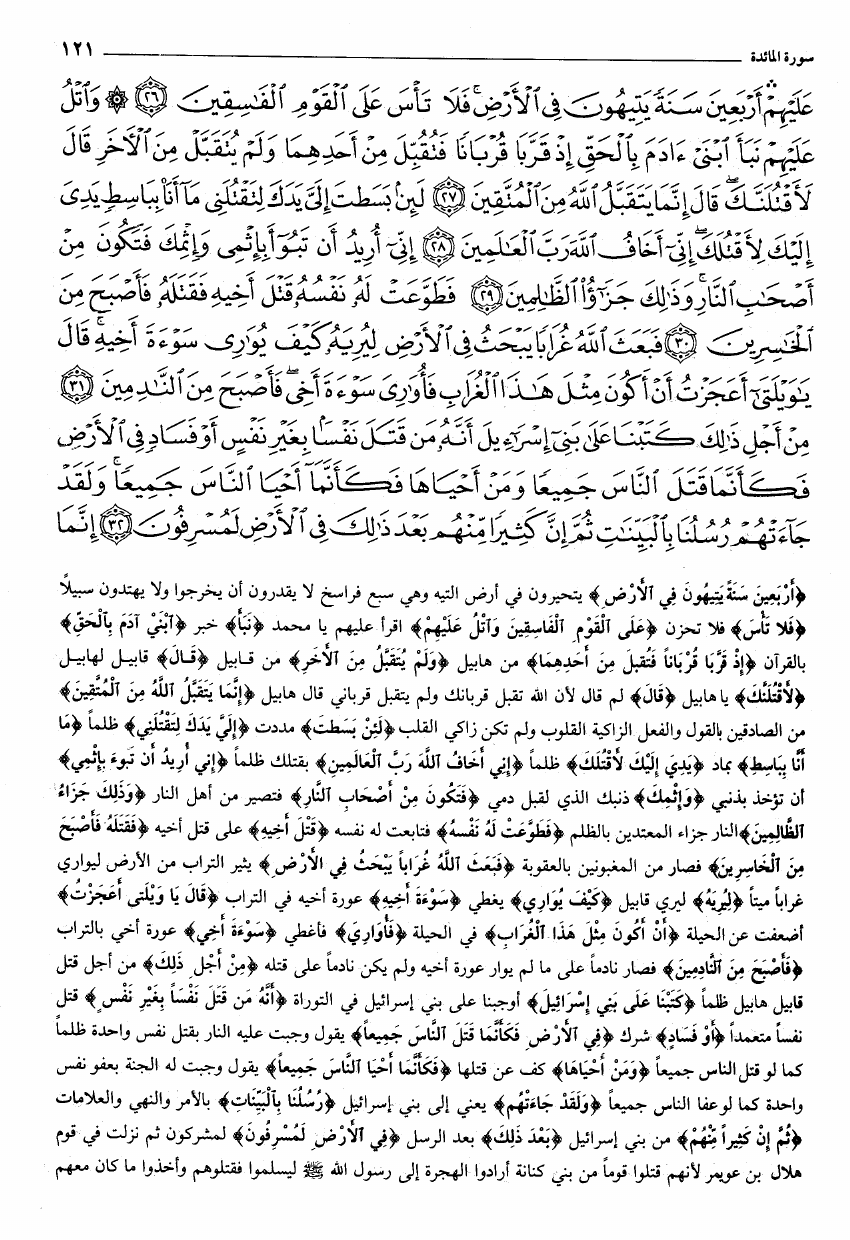 سورة المائدة ١٢١
عَلَيْهِمْ أَرْبَعِينَ سَنَةً يَتِيهُونَ فِي ٱلْأَرْضِ فَلَا تَأْسَ عَلَى ٱلْقَوْمِ ٱلْفَـٰسِقِينَ ﴿٢٦﴾ ۞ وَٱتْلُ
عَلَيْهِمْ نَبَأَ ٱبْنَىْ ءَادَمَ بِٱلْحَقِّ إِذْ قَرَّبَا قُرْبَانًا فَتُقُبِّلَ مِنْ أَحَدِهِمَا وَلَمْ يُتَقَبَّلْ مِنَ ٱلْأَخَرِ قَالَ
لَأَقْتُلَنَّكَ ۖ قَالَ إِنَّمَا يَتَقَبَّلُ ٱللَّهُ مِنَ ٱلْمُتَّقِينَ ﴿٢٧﴾ لَئِنۢ بَسَطتَ إِلَىَّ يَدَكَ لِتَقْتُلَنِى مَآ أَنَا۠ بِبَاسِطٍ يَدِىَ
إِلَيْكَ لِأَقْتُلَكَ ۖ إِنِّىٓ أَخَافُ ٱللَّهَ رَبَّ ٱلْعَـٰلَمِينَ ﴿٢٨﴾ إِنِّىٓ أُرِيدُ أَن تَبُوٓأَ بِإِثْمِى وَإِثْمِكَ فَتَكُونَ مِنْ
أَصْحَـٰبِ ٱلنَّارِ ۚ وَذَٰلِكَ جَزَٰٓؤُا۟ ٱلظَّـٰلِمِينَ ﴿٢٩﴾ فَطَوَّعَتْ لَهُۥ نَفْسُهُۥ قَتْلَ أَخِيهِ فَقَتَلَهُۥ فَأَصْبَحَ مِنَ
ٱلْخَـٰسِرِينَ ﴿٣٠﴾ فَبَعَثَ ٱللَّهُ غُرَابًا يَبْحَثُ فِى ٱلْأَرْضِ لِيُرِيَهُۥ كَيْفَ يُوَٰرِى سَوْءَةَ أَخِيهِ ۚ قَالَ
يَـٰوَيْلَتَىٰٓ أَعَجَزْتُ أَنْ أَكُونَ مِثْلَ هَـٰذَا ٱلْغُرَابِ فَأُوَٰرِىَ سَوْءَةَ أَخِى ۖ فَأَصْبَحَ مِنَ ٱلنَّـٰدِمِينَ ﴿٣١﴾
مِنْ أَجْلِ ذَٰلِكَ كَتَبْنَا عَلَىٰ بَنِىٓ إِسْرَٰٓءِيلَ أَنَّهُۥ مَن قَتَلَ نَفْسًۢا بِغَيْرِ نَفْسٍ أَوْ فَسَادٍ فِى ٱلْأَرْضِ
فَكَأَنَّمَا قَتَلَ ٱلنَّاسَ جَمِيعًا وَمَنْ أَحْيَاهَا فَكَأَنَّمَآ أَحْيَا ٱلنَّاسَ جَمِيعًا ۚ وَلَقَدْ
جَآءَتْهُمْ رُسُلُنَا بِٱلْبَيِّنَـٰتِ ثُمَّ إِنَّ كَثِيرًا مِّنْهُم بَعْدَ ذَٰلِكَ فِى ٱلْأَرْضِ لَمُسْرِفُونَ ﴿٣٢﴾ إِنَّمَا
﴿أَرْبَعِينَ سَنَةً يَتِيهُونَ فِي ٱلْأَرْضِ﴾ يتحيرون في أرض التيه وهي سبع فراسخ لا يقدرون أن يخرجوا ولا يهتدون سبيلاً
﴿فَلا تَأْسَ﴾ فلا تحزن ﴿عَلَى ٱلْقَوْمِ ٱلْفَاسِقِينَ وَٱتْلُ عَلَيْهِمْ﴾ اقرأ عليهم يا محمد ﴿نَبَأَ﴾ خبر ﴿ٱبْنَيْ آدَمَ بِٱلْحَقِّ﴾
بالقرآن ﴿إِذْ قَرَّبَا قُرْبَاناً فَتُقبلَ مِنْ أَحَدِهِمَا﴾ من هابيل ﴿وَلَمْ يُتَقَبَّلْ مِنَ ٱلأَخَرِ﴾ من قـابيل ﴿قَـالَ﴾ قابيـل لهابيـل
﴿لأَقْتُلَنَّكَ﴾ يا هابيل ﴿قَالَ﴾ لم قال لأن الله تقبل قربانك ولم يتقبل قرباني قال هابيل ﴿إِنَّمَا يَتَقَبَّلُ ٱللَّهُ مِنَ ٱلْمُتَّقِينَ﴾
من الصادقين بالقول والفعل الزاكية القلوب ولم تكن زاكي القلب ﴿لَئِنْ بَسَطتَ﴾ مددت ﴿إِلَيَّ يَدَكَ لِتَقْتُلَنِي﴾ ظلماً ﴿مَا
أَنَا بِبَاسِطٍ﴾ بماد ﴿يَدِيَ إِلَيْكَ لأَقْتُلَكَ﴾ ظلماً ﴿إِنِي أَخَافُ ٱللَّهَ رَبَّ ٱلْعَالَمِينَ﴾ بقتلك ظلماً ﴿إِني أُرِيدُ أَن تَبُوءَ بِإِثْمِي﴾
أن تؤخذ بذنبي ﴿وَإِثْمِكَ﴾ ذنبك الذي لقبل دمي ﴿فَتَكُونَ مِنْ أَصْحَابِ ٱلنَّارِ﴾ فتصير من أهل النار ﴿وَذَلِكَ جَزَاءُ
ٱلظَّالِمِينَ﴾ النار جزاء المعتدين بالظلم ﴿فَطَوَّعَتْ لَهُ نَفْسُهُ﴾ فتابعت له نفسه ﴿قَتْلَ أَخِيهِ﴾ على قتل أخيه ﴿فَقَتَلَهُ فَأَصْبَحَ
مِنَ ٱلْخَاسِرِينَ﴾ فصار من المغبونين بالعقوبة ﴿فَبَعَثَ ٱللَّهُ غُرَاباً يَبْحَثُ فِي الأَرْضِ﴾ يثير التراب من الأرض ليواري
غراباً ميتاً ﴿لِيُرِيَهُ﴾ ليري قابيل ﴿كَيْفَ يُوَارِي﴾ يغطي ﴿سَوْءَةَ أَخِيهِ﴾ عورة أخيه في التراب ﴿قَالَ يَا وَيْلَتى أَعَجَزْتُ﴾
أضعفت عن الحيلة ﴿أَنْ أَكُونَ مِثْلَ هَذَا ٱلْغُرَابِ﴾ في الحيلة ﴿فَأُوَارِيَ﴾ فأغطي ﴿سَوْءَةَ أَخِي﴾ عورة أخي بالتراب
﴿فَأَصْبَحَ مِنَ ٱلنَّادِمِينَ﴾ فصار نادماً على ما لم يوار عورة أخيه ولم يكن نادماً على قتله ﴿مِنْ أَجْلِ ذَلِكَ﴾ من أجل قتل
قابيل هابيل ظلماً ﴿كَتَبْنَا عَلَى بَنِي إِسْرَائِيلَ﴾ أوجبنا على بني إسرائيل في التوراة ﴿أَنَّهُ مَن قَتَلَ نَفْساً بِغَيْرِ نَفْسٍ﴾ قتل
نفساً متعمداً ﴿أَوْ فَسَادٍ﴾ شرك ﴿فِي ٱلأَرْضِ فَكَأَنَّمَا قَتَلَ ٱلنَّاسَ جَمِيعاً﴾ يقول وجبت عليه النار بقتل نفس واحدة ظلماً
كما لو قتل الناس جميعاً ﴿وَمَنْ أَحْيَاهَا﴾ كف عن قتلها ﴿فَكَأَنَّمَا أَحْيَا ٱلنَّاسَ جَمِيعاً﴾ يقول وجبت له الجنة بعفو نفس
واحدة كما لو عفا الناس جميعاً ﴿وَلَقَدْ جَاءَتْهُم﴾ يعني إلى بني إسرائيل ﴿رُسُلُنَا بِٱلْبَيِّنَاتِ﴾ بالأمر والنهي والعلامات
﴿ثُمَّ إِنَّ كَثِيراً مِّنْهُمْ﴾ من بني إسرائيل ﴿بَعْدَ ذَلِكَ﴾ بعد الرسل ﴿فِي ٱلأَرْضِ لَمُسْرِفُونَ﴾ لمشركون ثم نزلت في قوم
هلال بن عويمر لأنهم قتلوا قوماً من بني كنانة أرادوا الهجرة إلى رسول الله ﷺ ليسلموا فقتلوهم وأخذوا ما كان معهم